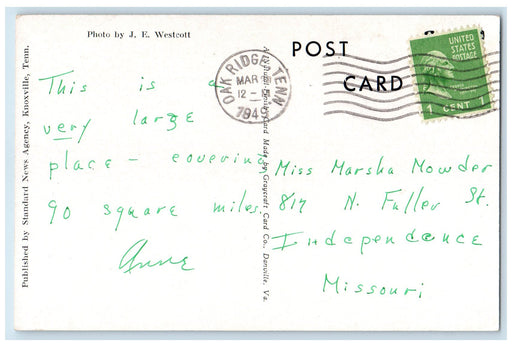 Photo by J. E. Westcott
POST
CARD
OAK RIDGE TENN
MAR
12 -
194
UNITED
STATES
POSTAGE
1 CENT 1
This is a
very large
place - covering
90 square miles.
Anne
Miss Marsha Mowder
817 N. Fuller St.
Independence
Missouri
Published by Standard News Agency, Knoxville, Tenn.
Card Made by Graycraft Card Co., Danville, Va.